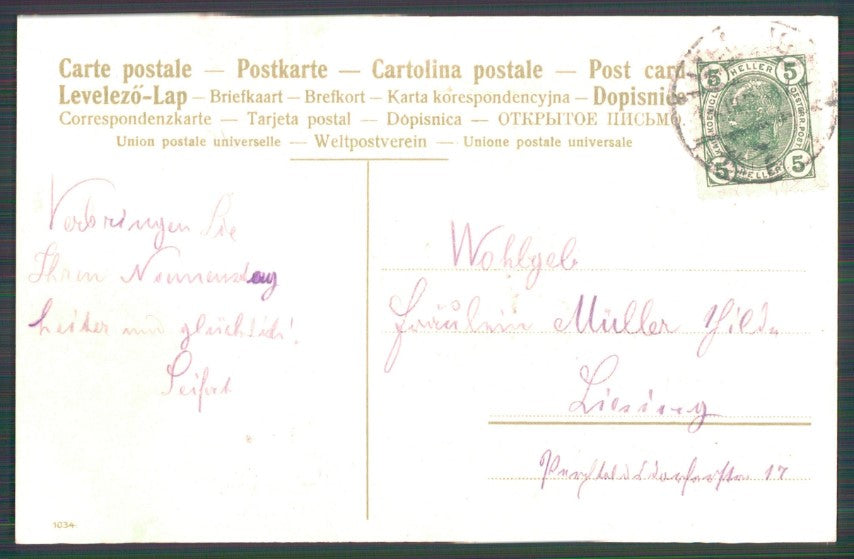 Carte postale — Postkarte — Cartolina postale — Post card
Levelező-Lap – Briefkaart – Brefkort – Karta korespondencyjna – Dopisnice
Correspondenzkarte — Tarjeta postal — Dópisnica — ОТКРЫТОЕ ПИСЬМО.
Union postale universelle — Weltpostverein — Unione postale universale
5 HELLER 5
5 HELLER 5
Verbringen Sie
Ihren Namenstag
heiter und glücklich!
Seifert
Wohlgeb
Fräulein Müller Hilda
Liesing
Perchtoldsdorferstr 17
1034